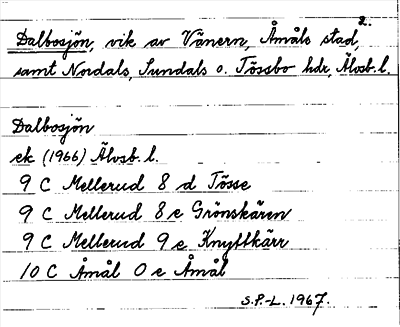 2.
Dalbosjön, vik av Vänern, Åmåls stad,
samt Nordals, Sundals o. Tössbo hdr, Älvsb. l.
Dalbosjön
ek (1966) Älvsb. l.
9 C Mellerud 8 d Tösse
9 C Mellerud 8 e Grönskären
9 C Mellerud 9 e Knyttkärr
10 C Åmål 0 e Åmål
S.P-L. 1967.